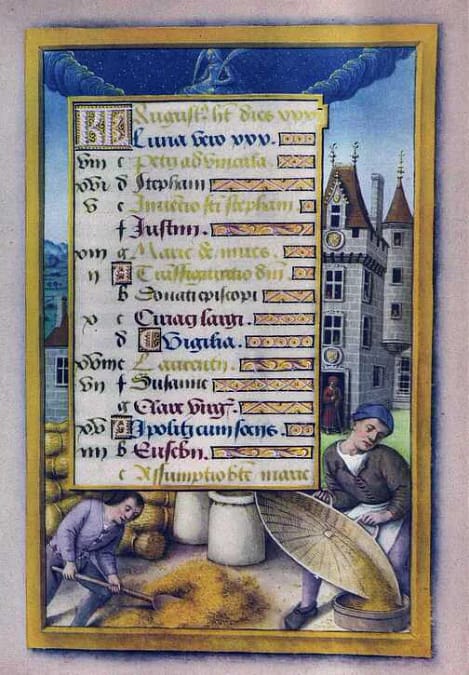 KL August⁹ ht dies xxxi
Luna vero xxx.
viii c Petri ad vincula.
xvi d Stephani
v e Inuetio sci stephani
f Iustini.
xiii g Marie de niues.
ii A Trasfiguratio dni
b Donati episcopi
x c Ciriaci largi.
d Vigilia.
xviii e Laurentii
vii f Susanne
g Clare virg.
xv A Ipoliti cum sociis.
iiii b Eusebii.
c Assumptio bte marie